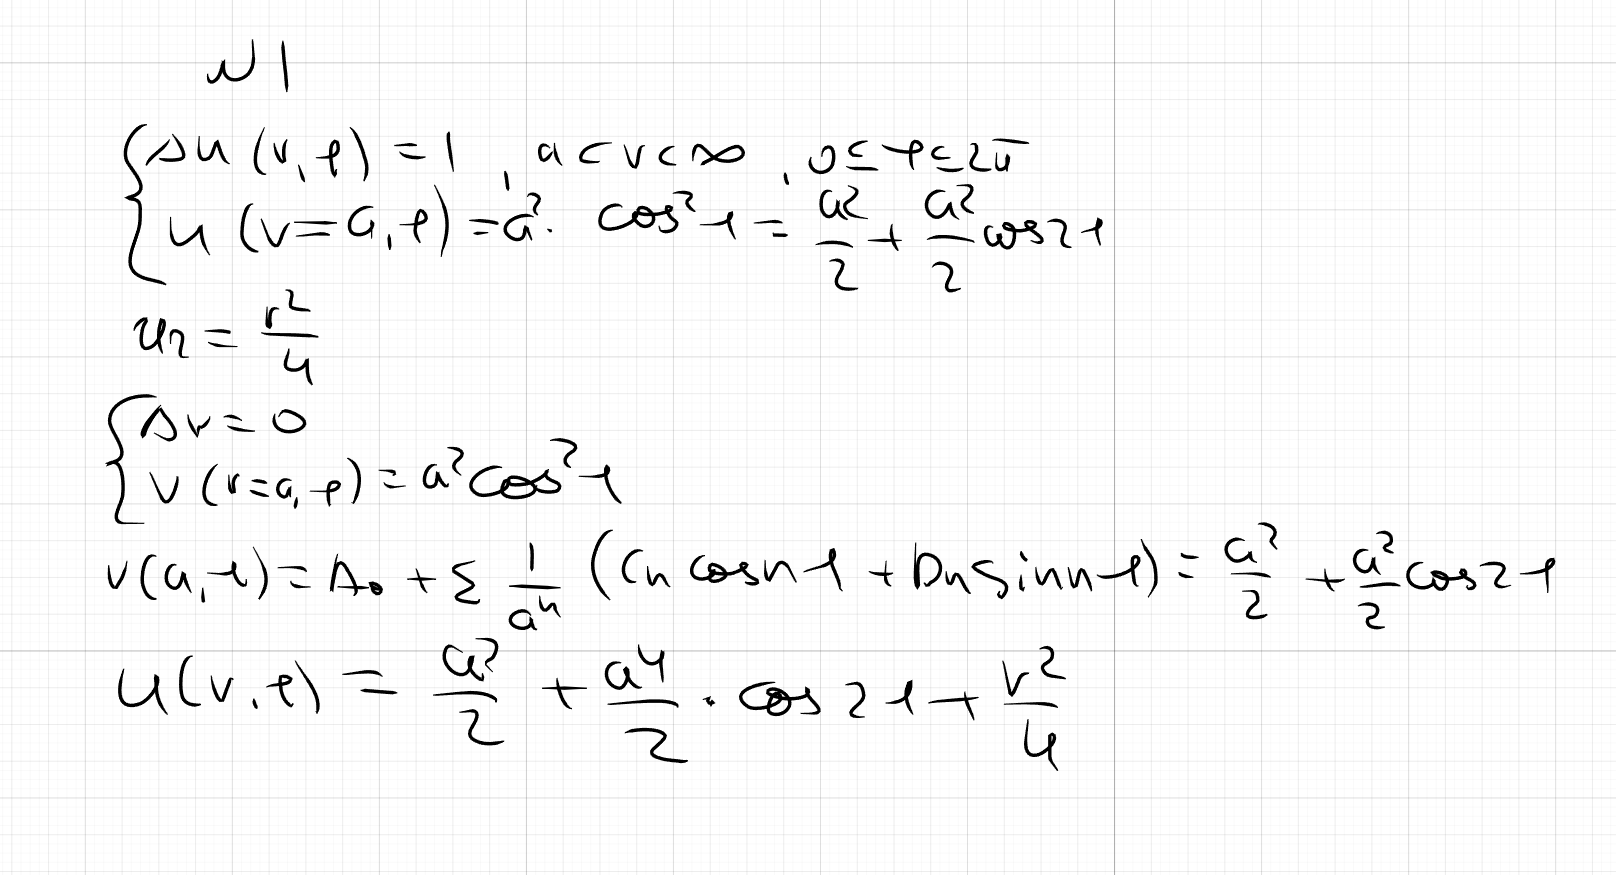 №1
{Δu(r,φ) = 1, a < r < ∞, 0 ≤ φ ≤ 2π
u(r=a,φ) = a²·cos²φ = a²/2 + a²/2 cos2φ
uч = r²/4
{Δv = 0
v(r=a,φ) = a²cos²φ
v(a,φ) = A₀ + Σ 1/aⁿ (Cn cosnφ + Dn sinnφ) = a²/2 + a²/2 cos2φ
u(r,φ) = a²/2 + a⁴/2 · cos2φ + r²/4